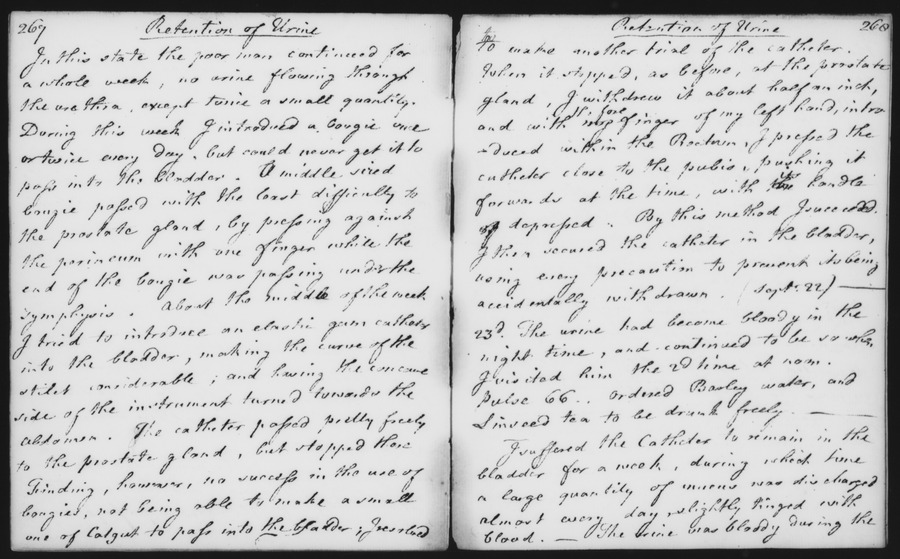 267 Retention of Urine
In this state the poor man continued for
a whole week, no urine flowing through
the urethra, except twice a small quantity.
During this week I introduced a bougie once
or twice every day, but could never get it to
pass into the bladder. A middle sized
bougie passed with the least difficulty to
the prostate gland, by pressing against
the perineum with one finger while the
end of the bougie was passing under the
symphysis. About the middle of the week
I tried to introduce an elastic gum catheter
into the bladder, making the curve of the
stilet considerable; and having the concave
side of the instrument turned towards the
abdomen. The catheter passed pretty freely
to the prostate gland, but stopped there
Finding, however, no success in the use of
bougies, not being able to make a small
one of Catgut to pass into the bladder; I resolved
Retention of Urine 268
to make another trial of the catheter.
When it stopped, as before, at the prostate
gland, I withdrew it about half an inch,
and with the fore finger of my left hand, intro
-duced within the Rectum, I pressed the
catheter close to the pubis, pushing it
forwards at the time, with its handle
depressed. By this method I succeeded.
I then secured the catheter in the bladder,
using every precaution to prevent its being
accidentally withdrawn. (Sept. 22)
23d. The urine had become bloody in the
night time, and continued to be so when
I visited him the 2d time at noon.
Pulse 66. Ordered Barley water, and
Linseed tea to be drank freely.
I suffered the Catheter to remain in the
bladder for a week, during which time
a large quantity of mucus was discharged
almost every day slightly tinged with
blood. — The urine was bloody during the